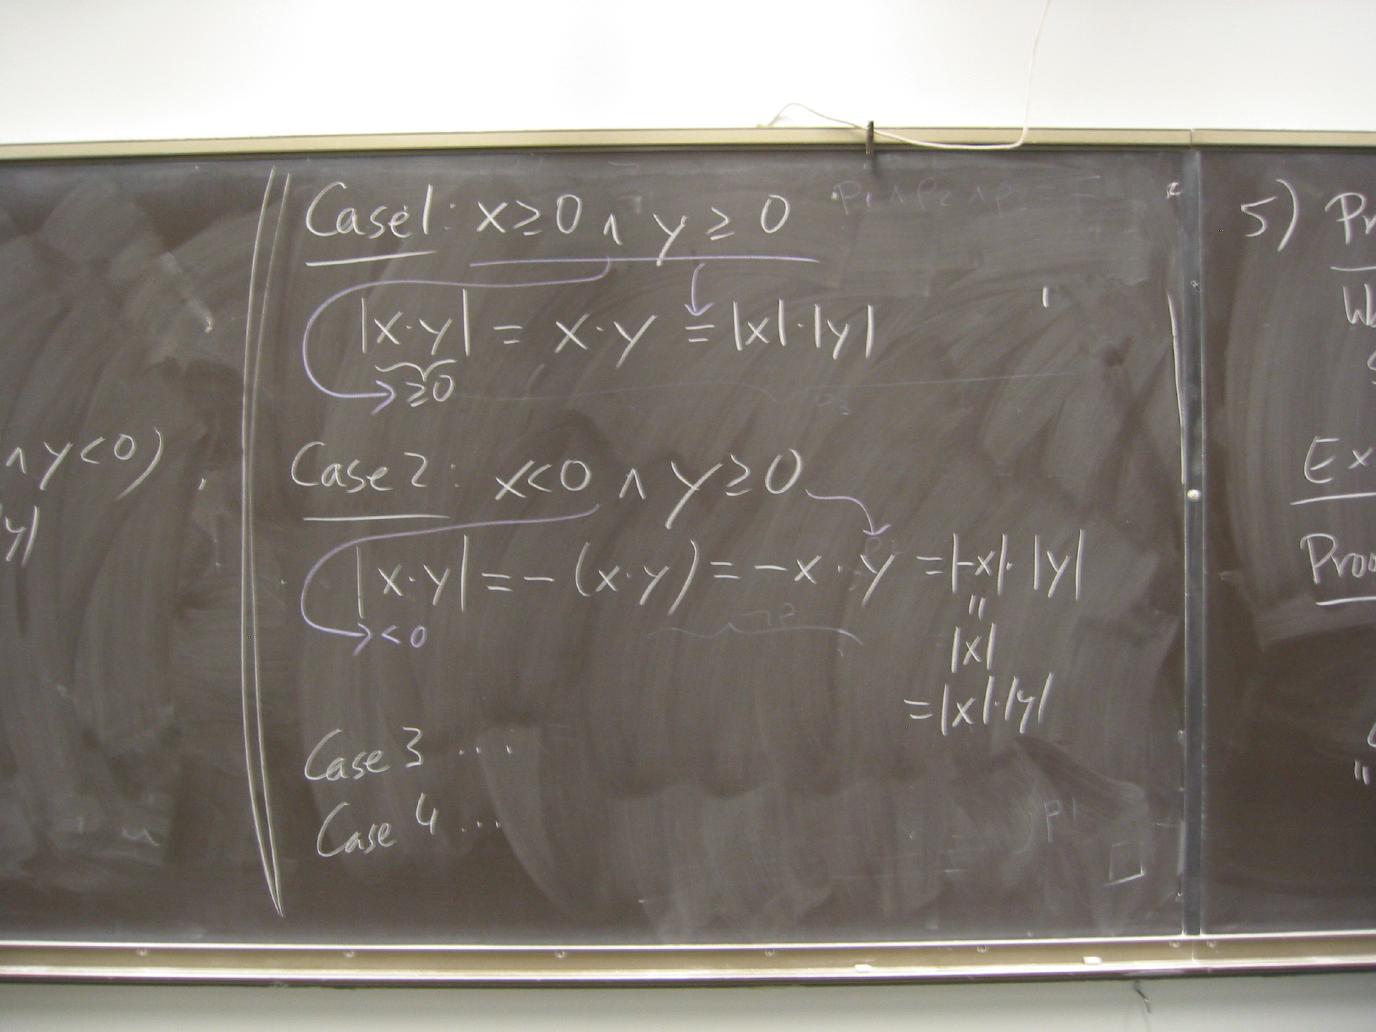 ∧ y<0)
y|
Case 1: x≥0 ∧ y≥0
|x·y| = x·y = |x|·|y|
≥0
Case 2: x<0 ∧ y≥0
|x·y| = -(x·y) = -x·y = |-x|·|y|
<0
"
|x|
= |x|·|y|
Case 3 ...
Case 4 ...
□
5) Pr
Ex
Proo
"